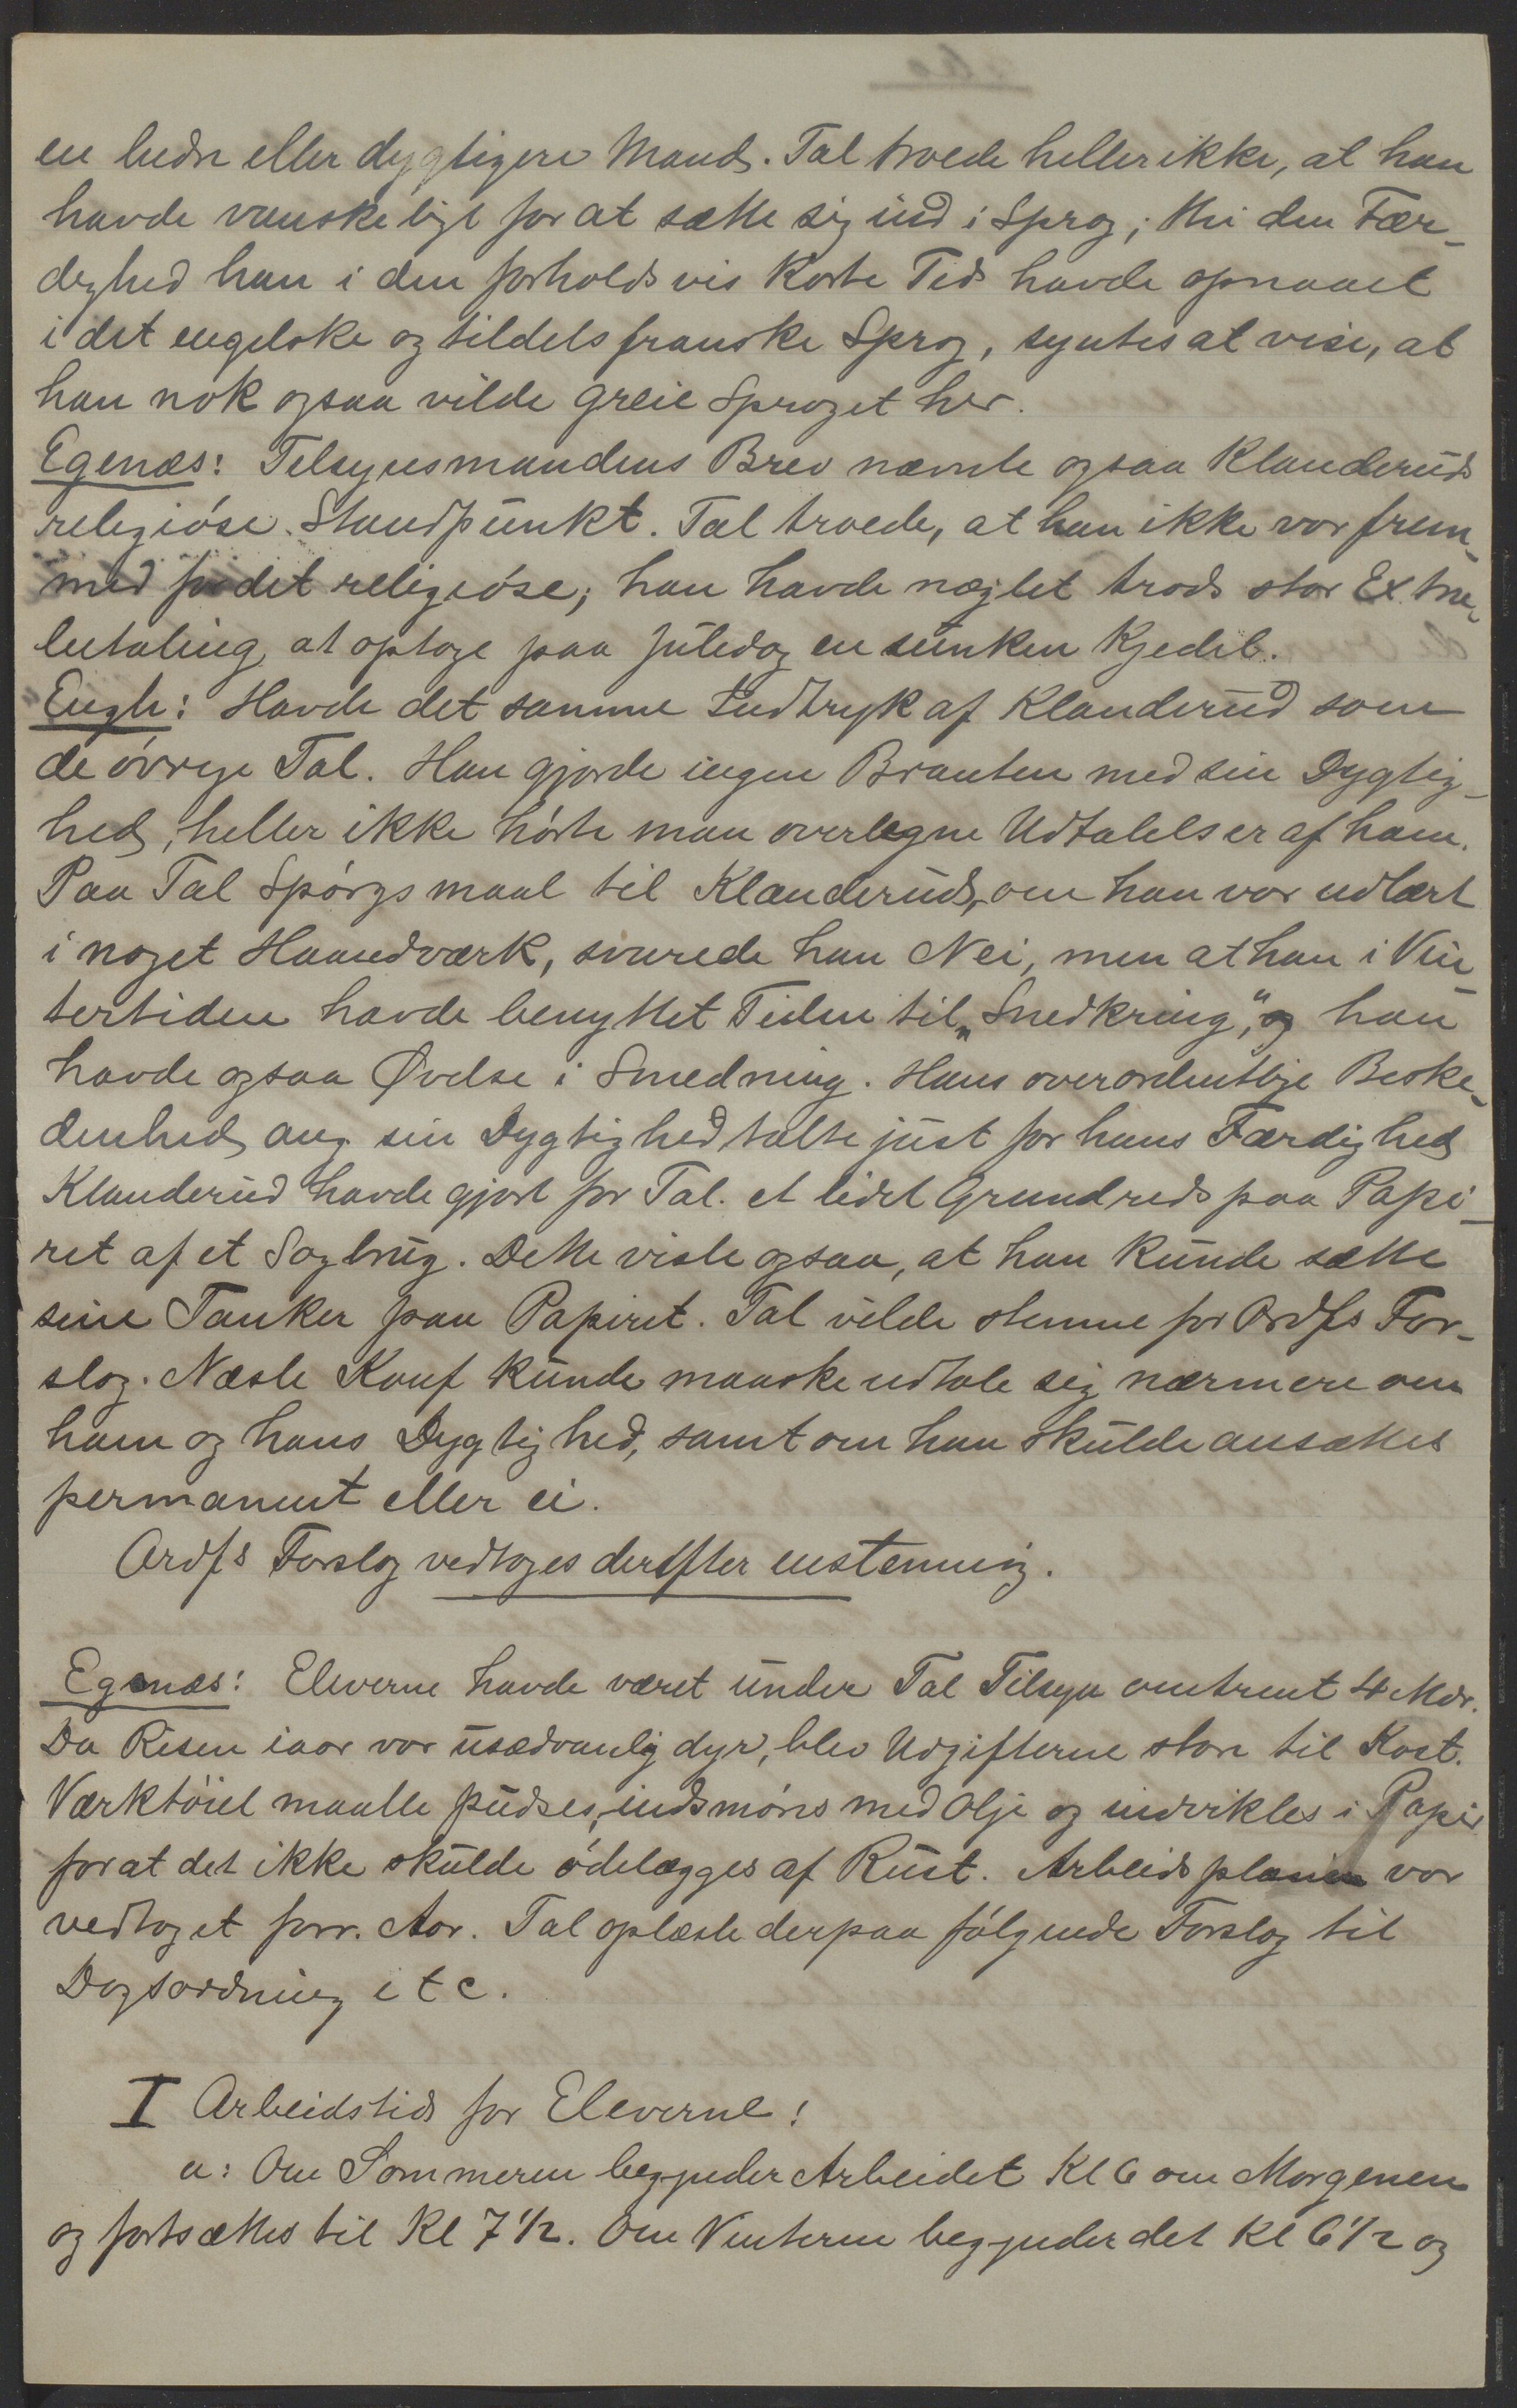 en bedre eller dygtigere Mand. Tal troede heller ikke, at han
havde vanskeligt for at sætte sig ind i Sprog; thi den Fær-
dighed han i den forholdsvis korte Tid havde opnaaet
i det engelske og tildels franske Sprog, syntes at vise, at
han nok ogsaa vilde greie Sproget her.
Egenæs: Tilsynsmandens Brev nævnte ogsaa Klanderuds
religiøse Standpunkt. Tal troede, at han ikke var frem-
med for det religiøse; han havde nægtet trods stor Extra-
betaling, at optage paa Juledag en sunken Kjedel.
Engh: Havde det samme Indtryk af Klanderud som
de øvrige Tal. Han gjorde ingen Brauten med sin Dygtig-
hed, heller ikke hørte man overlegne Udtalelser af ham.
Paa Tal Spørgsmaal til Klanderud, om han var udlært
i noget Haandværk, svarede han Nei, men at han i Vin-
tertiden havde benyttet Tiden til „Snedkring", og han
havde ogsaa Øvelse i Smedning. Hans overordentlige Beske-
denhed ang. sin Dygtighed talte just for hans Færdighed
Klanderud havde gjort for Tal. et lidet Grundrids paa Papi-
ret af et Sagbrug. Dette viste ogsaa, at han kunde sætte
sine Tanker paa Papiret. Tal vilde stemme for Ordfs For-
slag. Næste Konf kunde maaske udtale sig nærmere om
ham og hans Dygtighed, samt om han skulde ansættes
permanent eller ei.
Ordfs Forslag vedtoges derefter enstemmig.
Egenæs: Eleverne havde været under Tal Tilsyn omtrent 4 Mdr.
Da Risen iaar var usædvanlig dyr, blev Udgifterne store til Kost.
Værktøiet maatte pudses, indsmøres med Olje og indvikles i Papir
for at det ikke skulde ødelægges af Rust. Arbeidsplanen var
vedtaget forr. Aar. Tal oplæste derpaa følgende Forslag til
Dagsordning etc.
I Arbeidstid for Eleverne!
a: Om Sommeren begynder Arbeidet Kl 6 om Morgenen
og fortsættes til Kl 7 1/2. Om Vinteren begynder det Kl 6 1/2 og